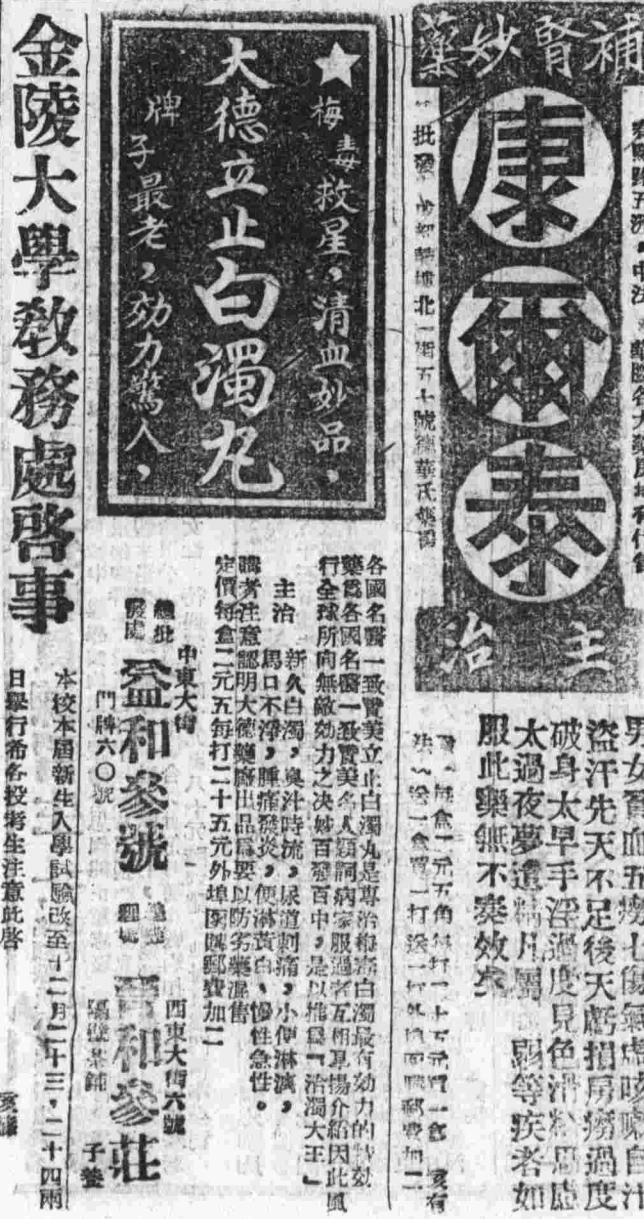 補腎妙藥
康爾泰
主治
批發 成都華埠北一街五十號德華氏藥房
男女腎血五癆七傷氣虛咳嗽自汗
盜汗先天不足後天虧損房癆過度
破身太早手淫過度見色滑精
太過夜夢遺精凡屬 等疾者如
服此藥無不奏效
每盒一元五角每打一十五元買一盒
送一盒買一打送一打外埠函購郵費加一
★梅毒救星，清血妙品，
大德立止白濁丸
牌子最老，効力驚人，
各國名醫一致贊美立止白濁丸是專治梅毒白濁最有効力的特效
藥爲各國名醫一致贊美名人題詞病家服過者互相專揚介紹因此風
行全球所向無敵効力之决妙百發百中，是以推爲「治濁大王」
主治 新久白濁，臭汁時流，尿道刺痛，小便淋漓，
馬口不淨，腫痛發炎，便淋黃白，慢性急性。
購者注意認明大德藥廠出品爲要以防劣藥混售
定價每盒二元五每打二十五元外埠函購郵費加二
總批發處
中東大街
益和參號
門牌六〇號
西東大街六號
吉和參莊
隔壁茶鋪
金陵大學教務處啓事
本校本屆新生入學試驗改至十二月二十三，二十四兩
日舉行希各投考生注意此啓